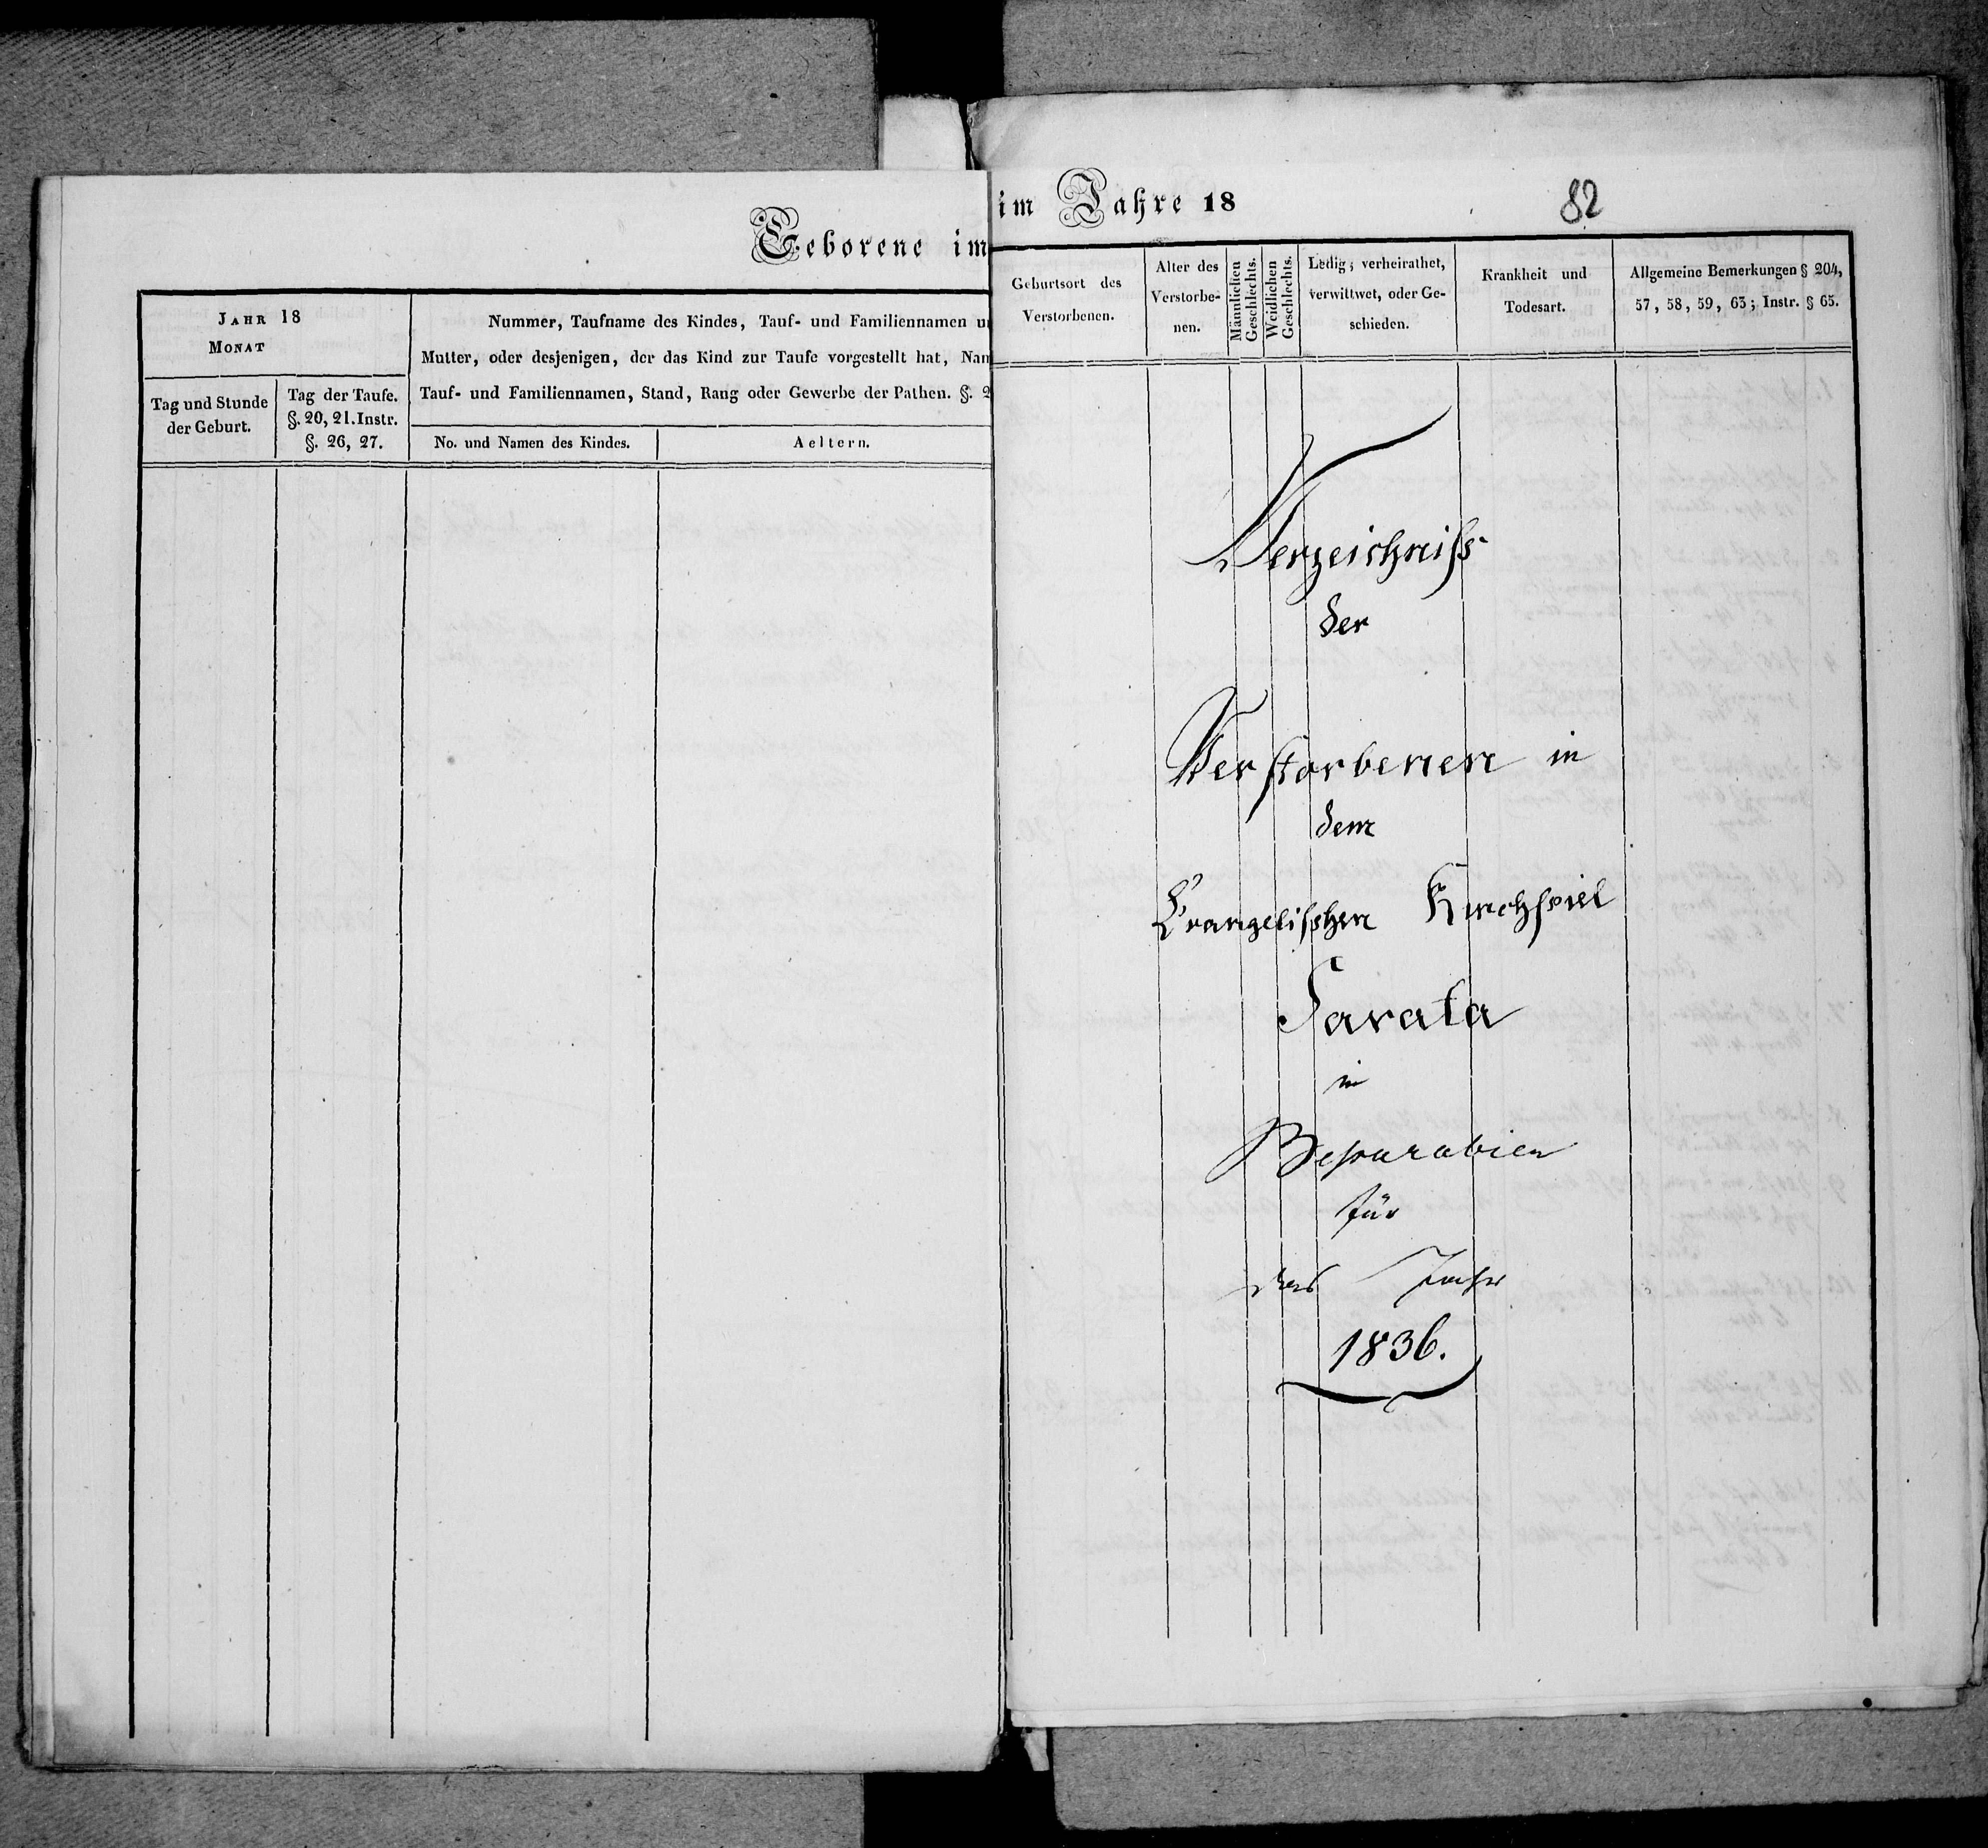 Geborene im
JAHR 18
MONAT
Tag und Stunde
der Geburt.
Tag der Taufe.
§. 20, 21. Instr.
§. 26, 27.
Nummer, Taufname des Kindes, Tauf- und Familiennamen
Mutter, oder desjenigen, der das Kind zur Taufe vorgestellt hat,
Tauf- und Familiennamen, Stand, Rang oder Gewerbe der Pathen. §. 2
No. und Namen des Kindes.
Aeltern.
im Jahre 18
82
Geburtsort des
Verstorbenen.
Alter des
Verstorbe-
nen.
Männlichen
Geschlechts.
Weidlichen
Geschlechts.
Ledig; verheirathet,
verwittwet, oder Ge-
schieden.
Krankheit und
Todesart.
Allgemeine Bemerkungen § 204,
57, 58, 59, 63; Instr. § 65.
Verzeichniss
der
Verstorbenen in
dem
Evangelischen Kirchspiel
Sarata
in
Bessarabien
für
das Jahr
1836.